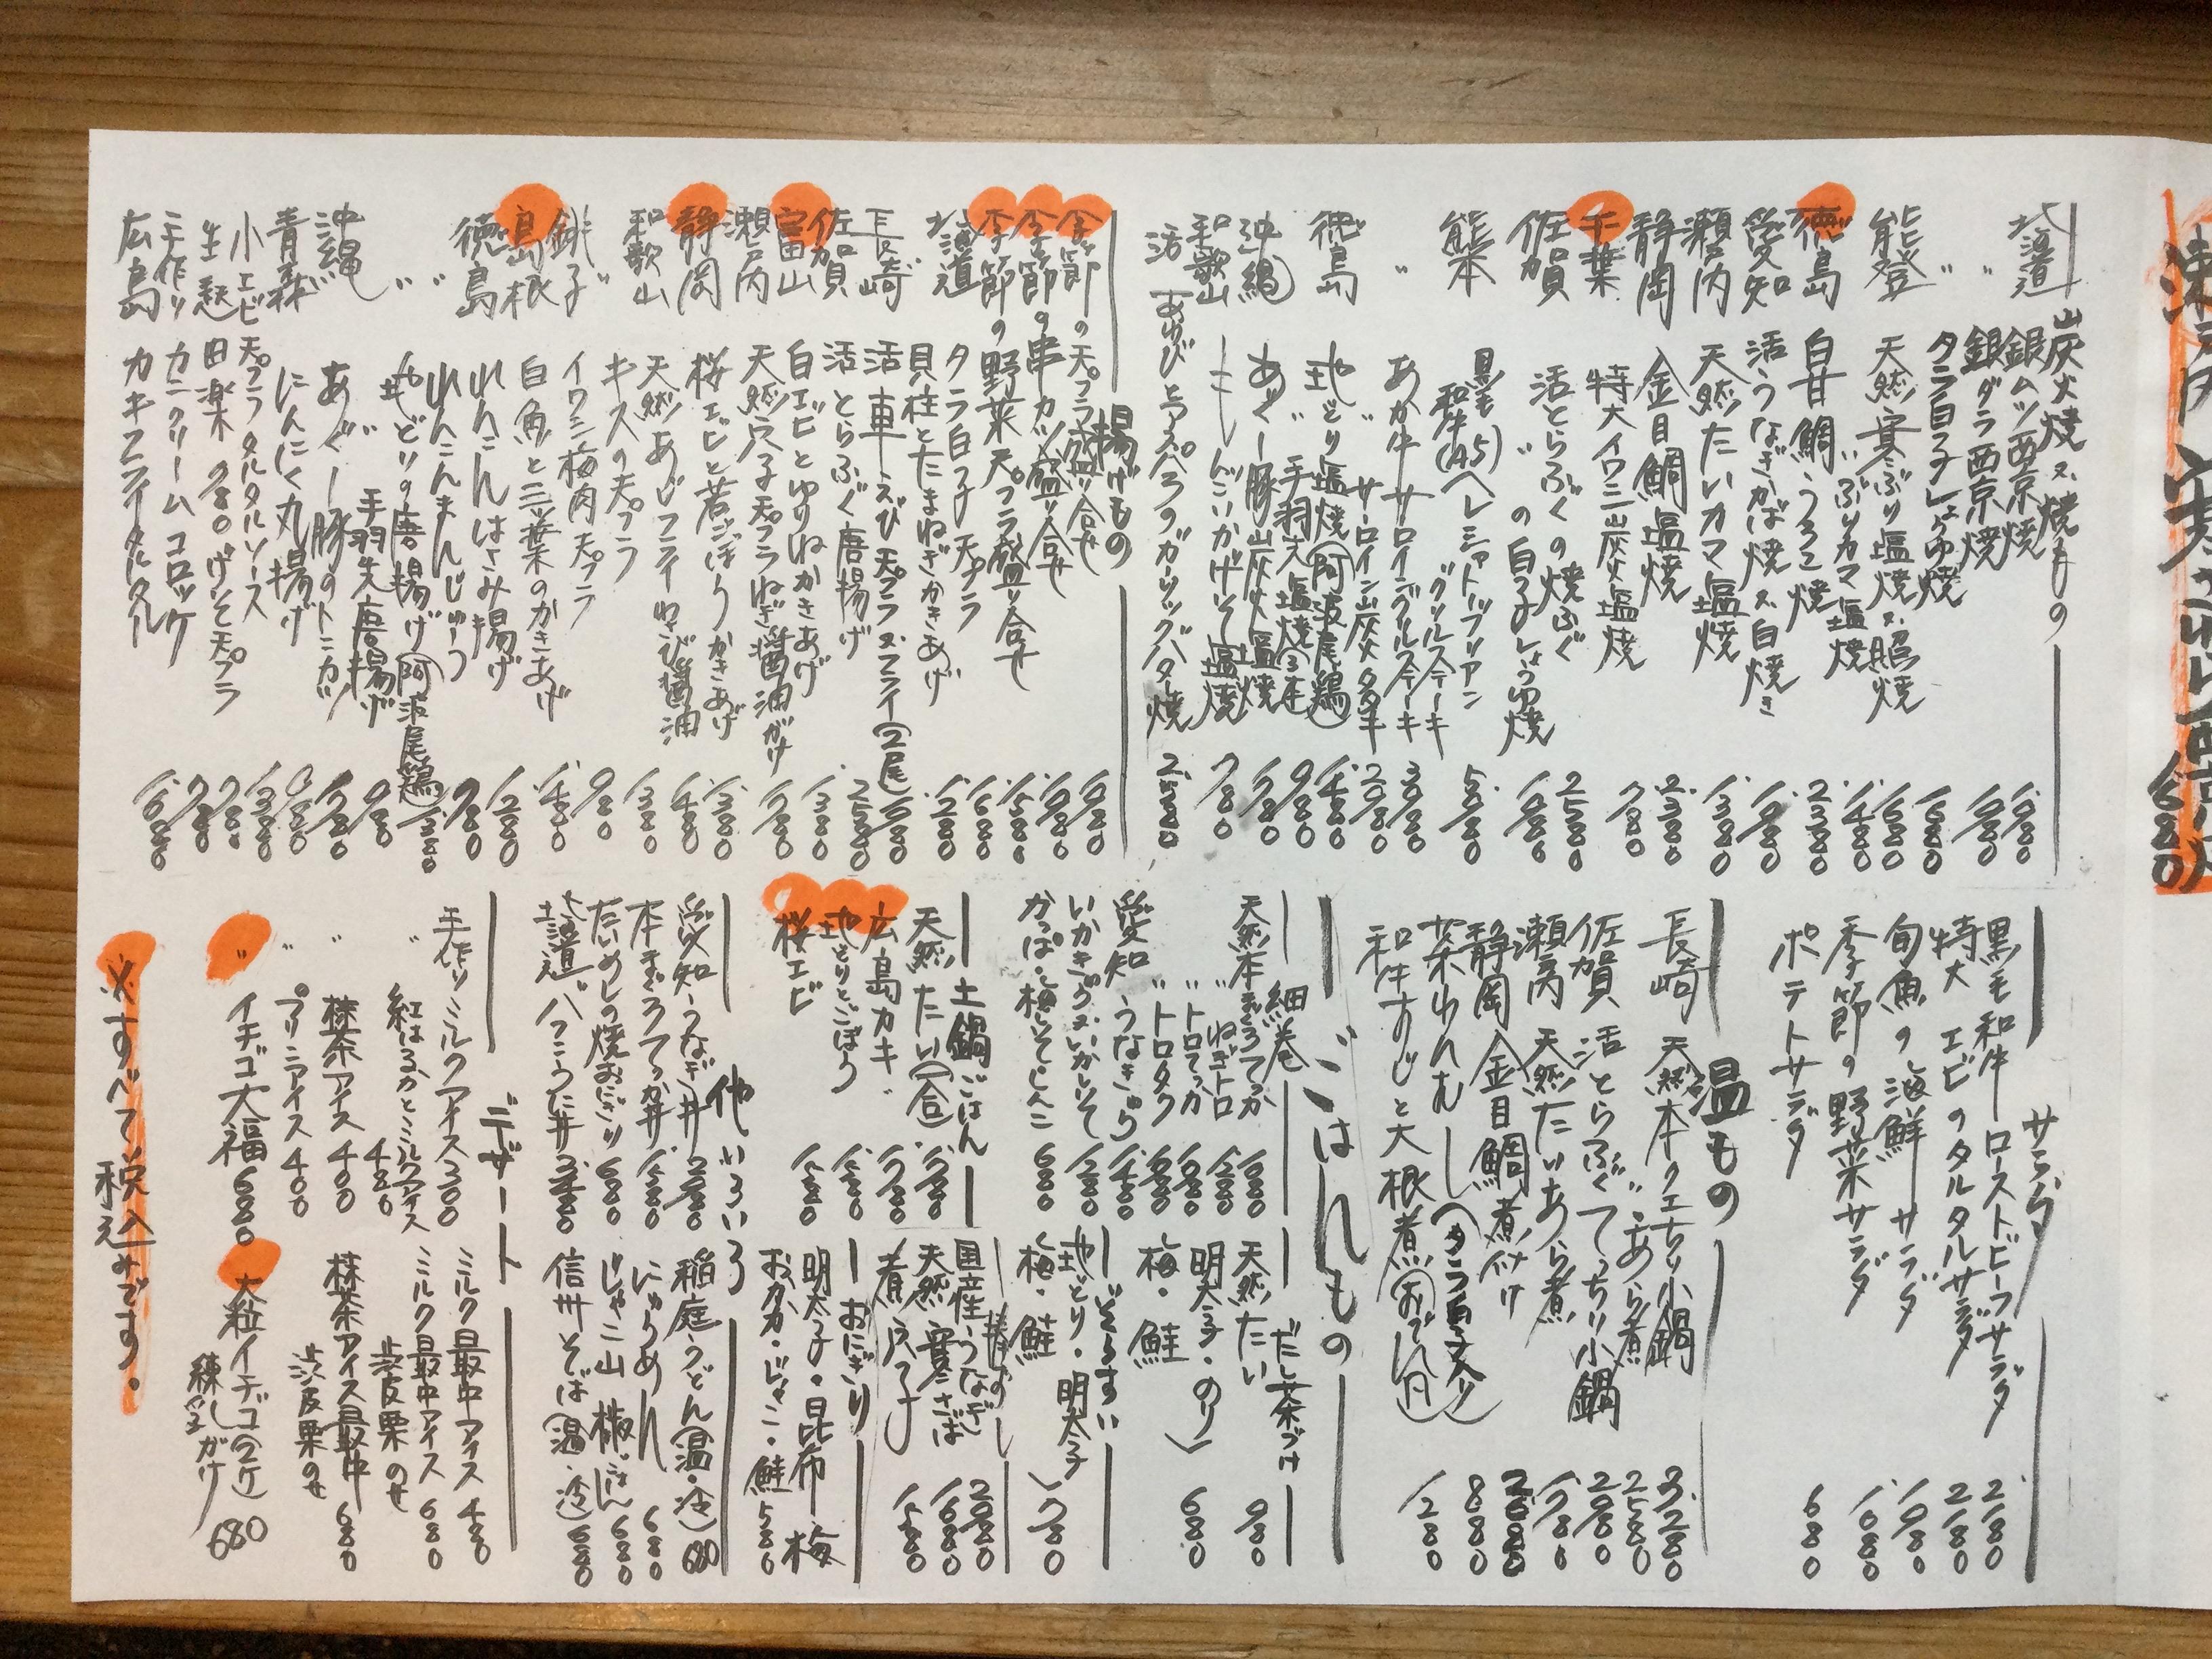 炭火焼又焼もの
北海道 銀ムツ西京焼 1,980
〃 銀ダラ西京焼 1,980
〃 タラ白子しょうゆ焼 1,680
能登 天然寒ぶり塩焼又照焼 1,680
〃 ぶりカマ塩焼 1,480
徳島 白甘鯛うろこ焼 2,380
愛知 活うなぎかば焼又白焼き
瀬戸内 天然たいカマ塩焼 1,380
静岡 金目鯛塩焼 2,380
千葉 特大イワシ炭火塩焼 780
佐賀 活とらふぐの焼ふぐ 2,580
〃 の白子しょうゆ焼
熊本 黒毛和牛(A5)ヘレシャトーブリアン
グリルステーキ
あか牛サーロイングリルステーキ
〃 サーロイン炭火タタキ
徳島 地どり塩焼(阿波尾鶏) 1,480
〃 手羽先塩焼(3本) 980
沖縄 あぐー豚炭火塩焼 1,780
和歌山 しんこいかげそ塩焼 780
活あわびとアスパラのガーリックバター焼 2,580
揚げもの
季節の天プラ盛り合せ
季節の串カツ盛り合せ
季節の野菜天プラ盛り合せ 1,580
北海道 タラ白子天プラ 1,680
貝柱とたまねぎかきあげ 1,280
長崎 活車えび天プラ又フライ(2尾) 1,680
佐賀 活とらふぐ唐揚げ 2,580
富山 白エビとゆりねかきあげ 1,380
瀬戸内 天然穴子天プラねぎ醤油がけ
静岡 桜エビと若ごぼうかきあげ 1,380
和歌山 天然あじフライわさび醤油 1,480
キスの天プラ 1,380
銚子 イワシ梅肉天プラ 980
島根 白魚と三つ葉のかきあげ 1,480
徳島 れんこんはさみ揚げ 1,280
〃 れんこんまんじゅう 980
〃 地どりの唐揚げ(阿波尾鶏) 1,380
〃 手羽先唐揚げ 980
沖縄 あぐー豚のトンカツ 1,780
青森 にんにく丸揚げ
小エビ天プラタルタルソース 1,380
生こんにゃく
手作りカニクリームコロッケ
広島 カキフライタルタル 1,680
サラダ
黒毛和牛ローストビーフサラダ 2,180
特大エビのタルタルサラダ 2,180
旬魚の海鮮サラダ 1,980
季節の野菜サラダ 1,080
ポテトサラダ 680
温もの
長崎 天然本クエちり小鍋 3,280
〃 あら煮 2,580
佐賀 活とらふぐてっちり小鍋 2,980
瀬戸内 天然たいあら煮 1,780
静岡 金目鯛煮付け 2,680
茶わんむし(タラ白子入り) 880
和牛すじと大根煮(おでん風) 1,280
ごはんもの
細巻
天然本まぐろてっか 1,680
〃 ねぎトロ 1,280
〃 トロてっか 1,980
〃 トロタク
愛知 うなきゅう 1,480
いかきゅう又いかしそ 1,280
かっぱ・梅しそ・しんこ 680
だし茶づけ
天然たい 980
明太子・のり
梅・鮭 680
ぞうすい
地どり・明太子
梅・鮭 780
土鍋ごはん
天然たい(一合) 1,780
広島カキ 1,780
地とりとごぼう 1,580
桜エビ 1,580
棒ずし
国産うなぎ 2,980
天然寒さば 1,680
煮穴子 1,580
おにぎり
明太子・昆布・梅
おかか・じゃこ・鮭 580
他いろいろ
愛知うなぎ丼
本まぐろてっか丼 1,580
たいめしの焼おにぎり 680
北海道バフンうに丼
稲庭うどん(温・冷) 680
にゅうめん 680
じゃこ山椒ごはん 680
信州そば(温・冷) 680
デザート
手作りミルクアイス 300
〃 紅はるかとミルクアイス 480
〃 抹茶アイス 400
〃 プリンアイス 400
〃 イチゴ大福 680
ミルク最中アイス 480
ミルク最中アイス
渋皮栗のせ 680
抹茶アイス最中
渋皮栗のせ 680
大粒イチゴ(2ケ)
練しるがけ 680
※すべて税込みです。